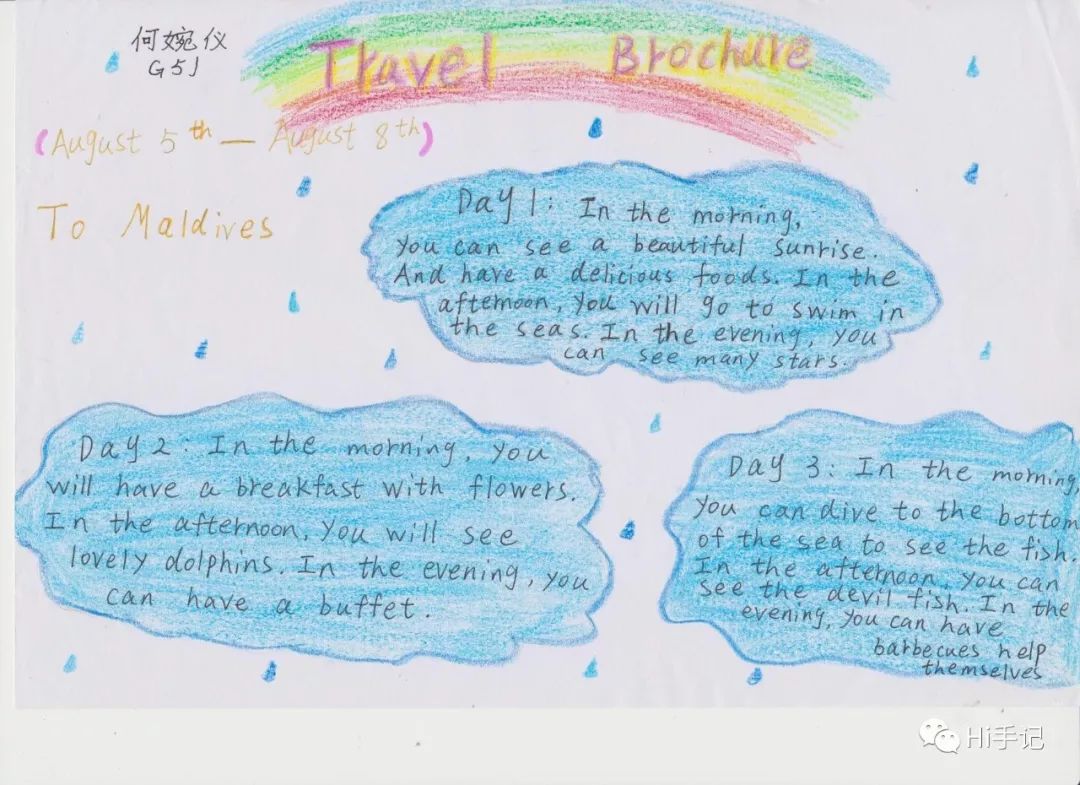 何婉仪
G5J
Travel Brochure
(August 5th — August 8th)
To Maldives
Day 1: In the morning,
you can see a beautiful sunrise.
And have a delicious foods. In the
afternoon, you will go to swim in
the seas. In the evening, you
can see many stars.
Day 2: In the morning, you
will have a breakfast with flowers.
In the afternoon, you will see
lovely dolphins. In the evening, you
can have a buffet.
Day 3: In the morning,
you can dive to the bottom
of the sea to see the fish.
In the afternoon, you can
see the devil fish. In the
evening, you can have
barbecues help
themselves
Hi手记